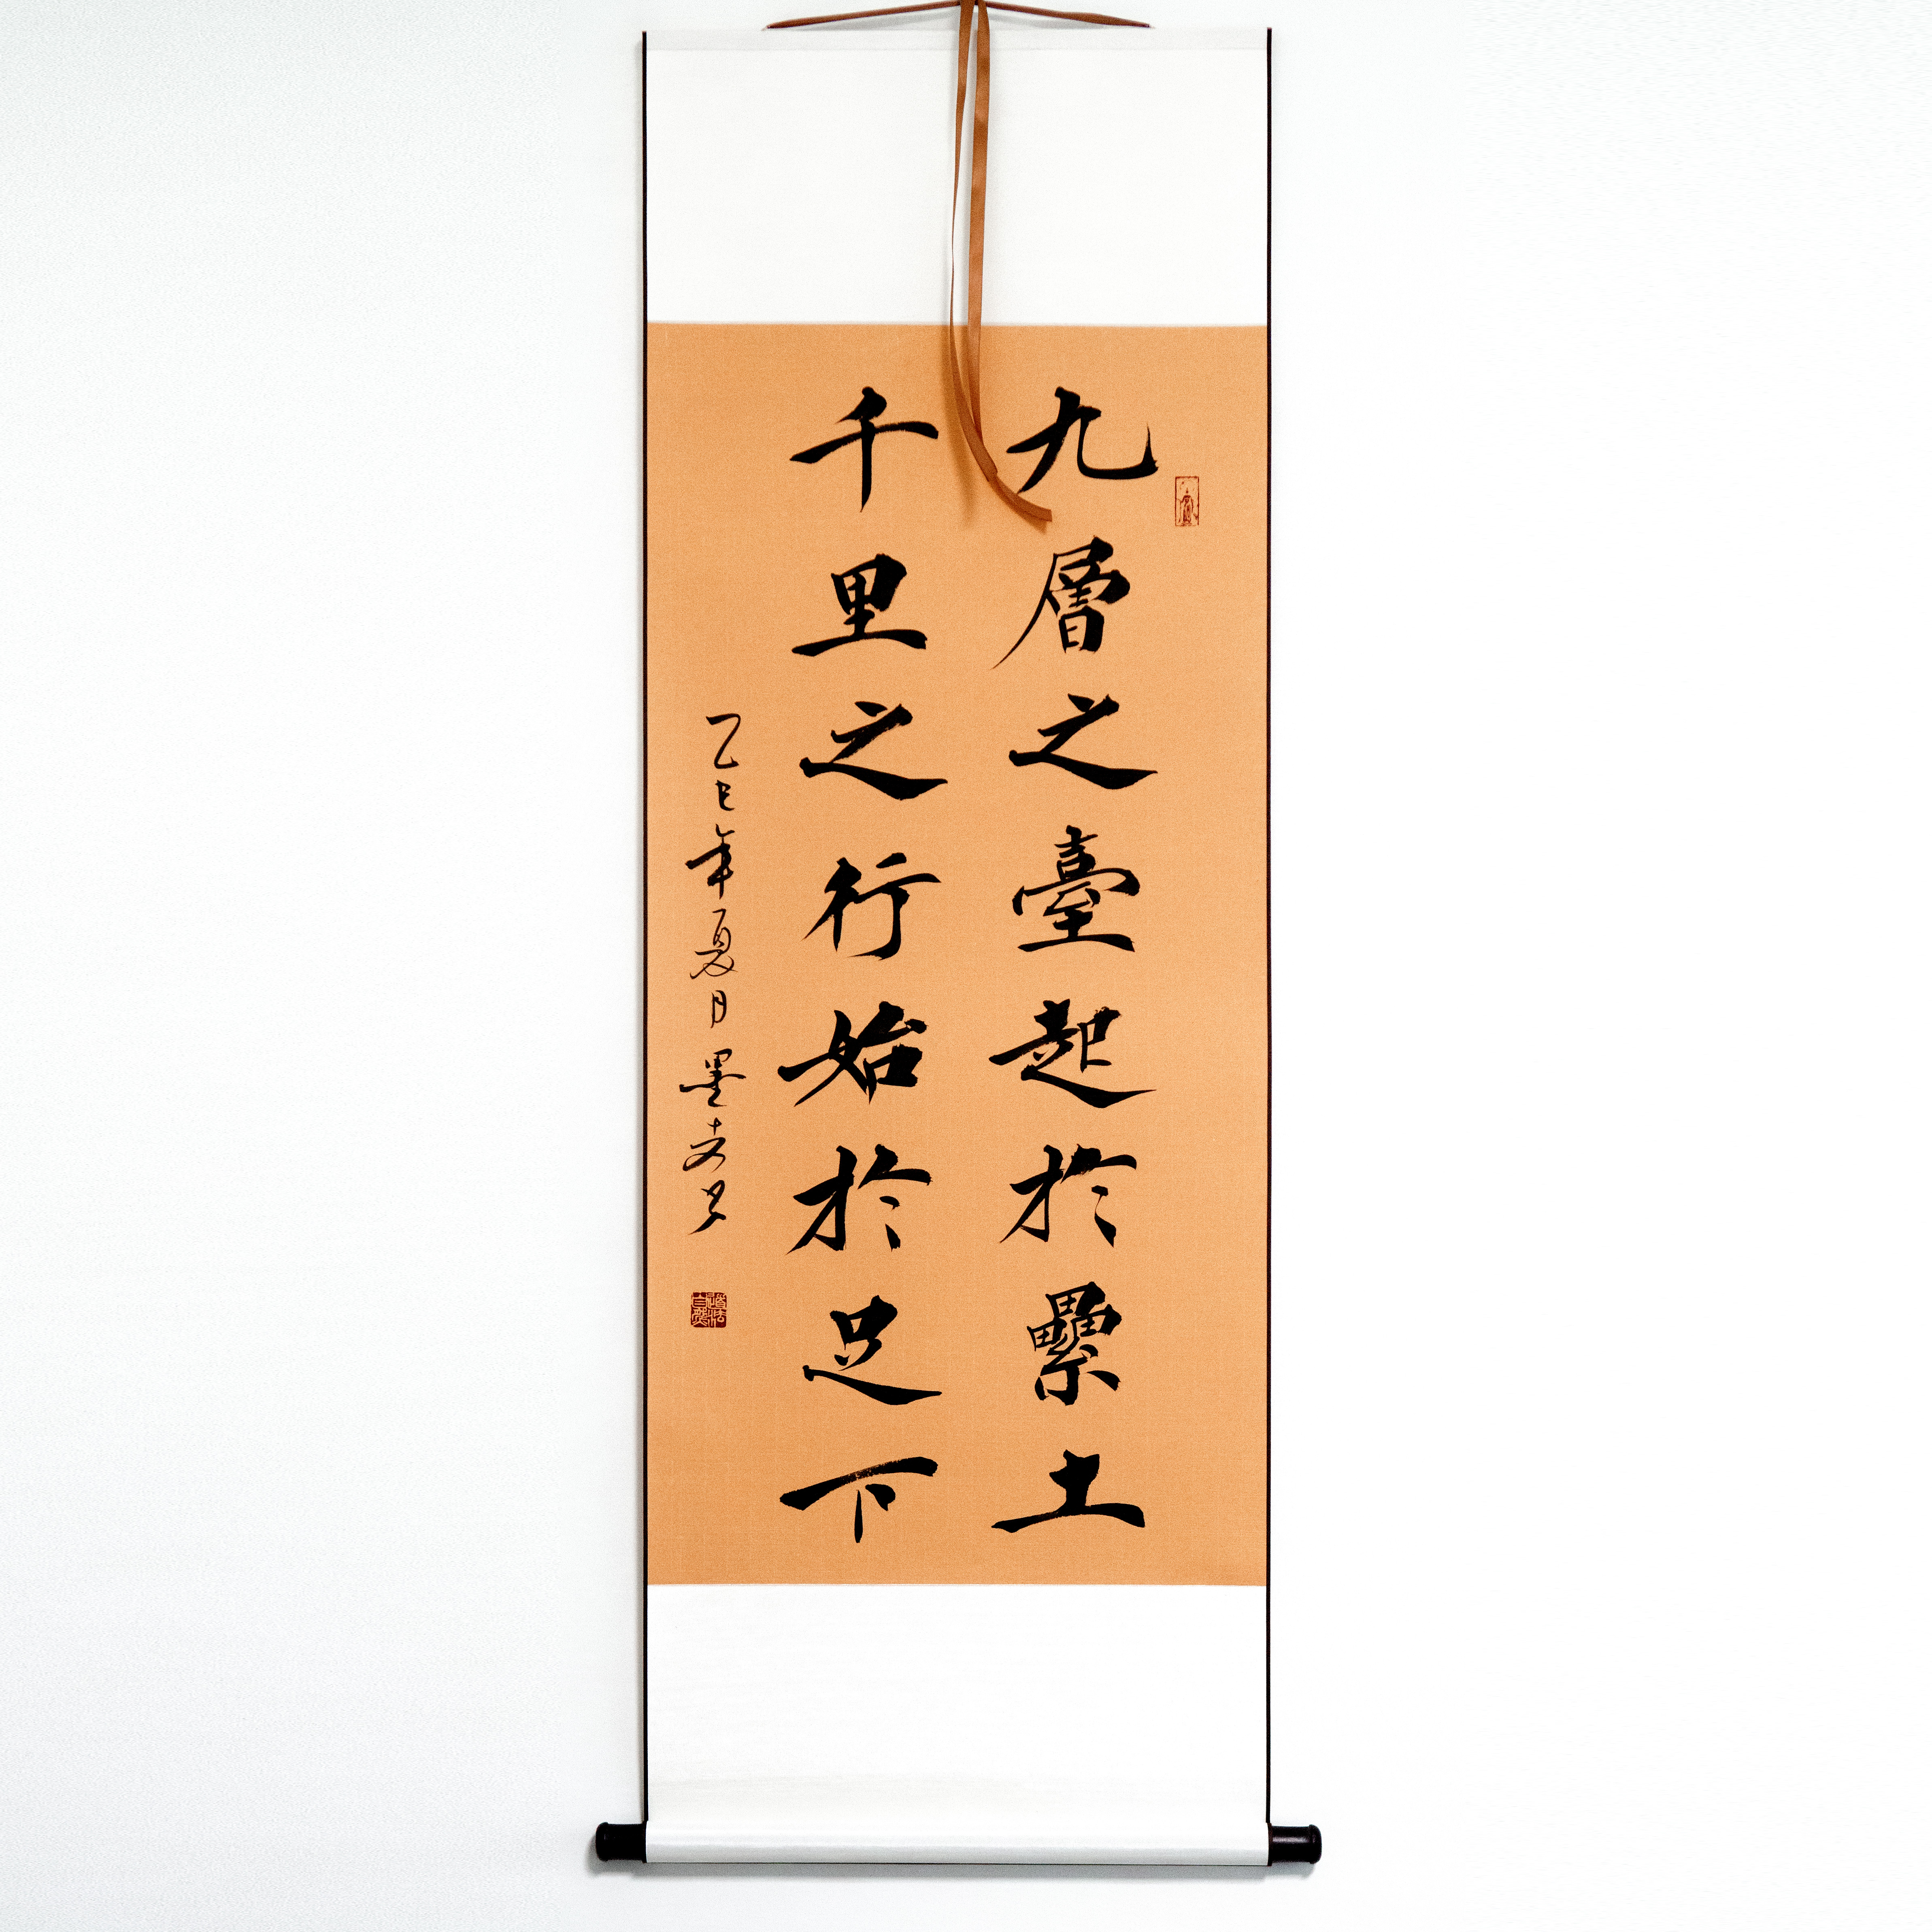 九層之臺起於纍土
千里之行始於足下
乙巳年夏月墨
道法自然